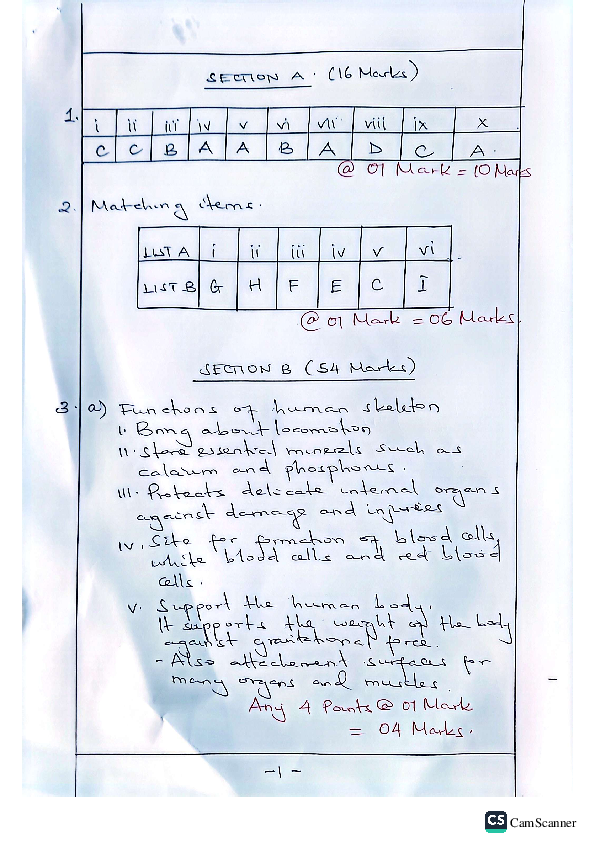 SECTION A. (16 Marks)
1.
i ii iii iv v vi vii viii ix x
C C B A A B A D C A.
@ 01 Mark = 10 Marks
2. Matching items.
LIST A i ii iii iv v vi
LIST B G H F E C I
@ 01 Mark = 06 Marks.
SECTION B (54 Marks)
3. a) Functions of human skeleton
i. Bring about locomotion
ii. Store essential minerals such as
calcium and phosphorus.
iii. Protects delicate internal organs
against damage and injuries
iv. Site for formation of blood cells,
white blood cells and red blood
cells.
v. Support the human body.
It supports the weight of the body
against gravitational force.
- Also attachement surfaces for
many organs and muscles.
Any 4 Points @ 01 Mark
= 04 Marks.
-1-
CS CamScanner